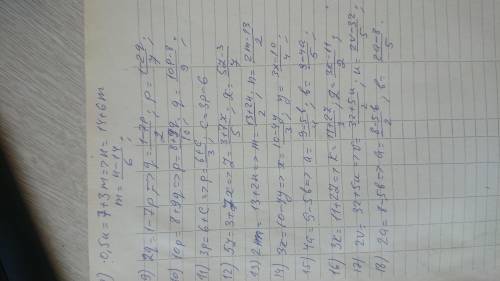 ) 0,5n=7+3m=>n=14+6m
m=n-14/6;
9) 2q=1-7p=>q=1-7p/2, p=1-2q/7;
10) 10p=8+9q=>p=8+9q/10, q=10p-8/9
11) 3p=6+c=>p=6+c/3, c=3p-6
12) 5y=3+7x=>y=3+7x/5, x=5y-3/7
13) 2m=13+2n=>m=13+2n/2, n=2m-13/2
14) 3x=10-4y=>x=10-4y/3, y=3x-10/4
15) 4a=9-5b=>a=9-5b/4, b=9-4a/5
16) 3k=11+2l=>k=11+2l/3, l=3k-11/2;
17) 2v=32+5u=>v=32+5u/2, u=2v-32/5
18) 2a=8-5b=>a=8-5b/2, b=2a-8/5